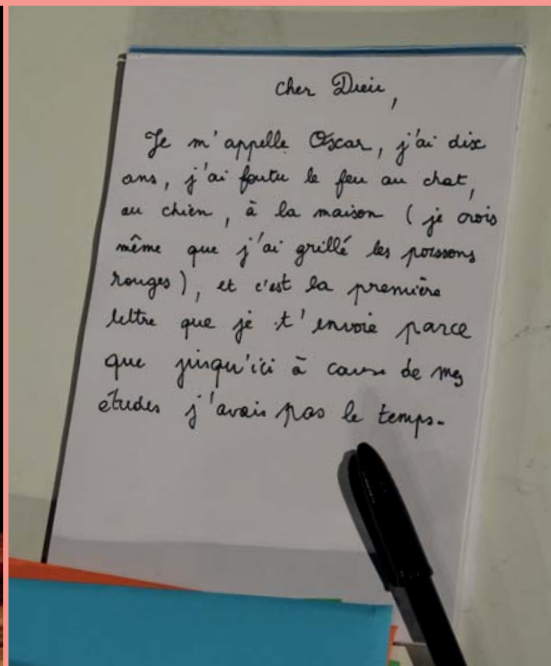 cher Dieu,
Je m'appelle Oscar, j'ai dix
ans, j'ai foutu le feu au chat,
au chien, à la maison (je crois
même que j'ai grillé les poissons
rouges), et c'est la première
lettre que je t'envoie parce
que jusqu'ici à cause de mes
études j'avais pas le temps.